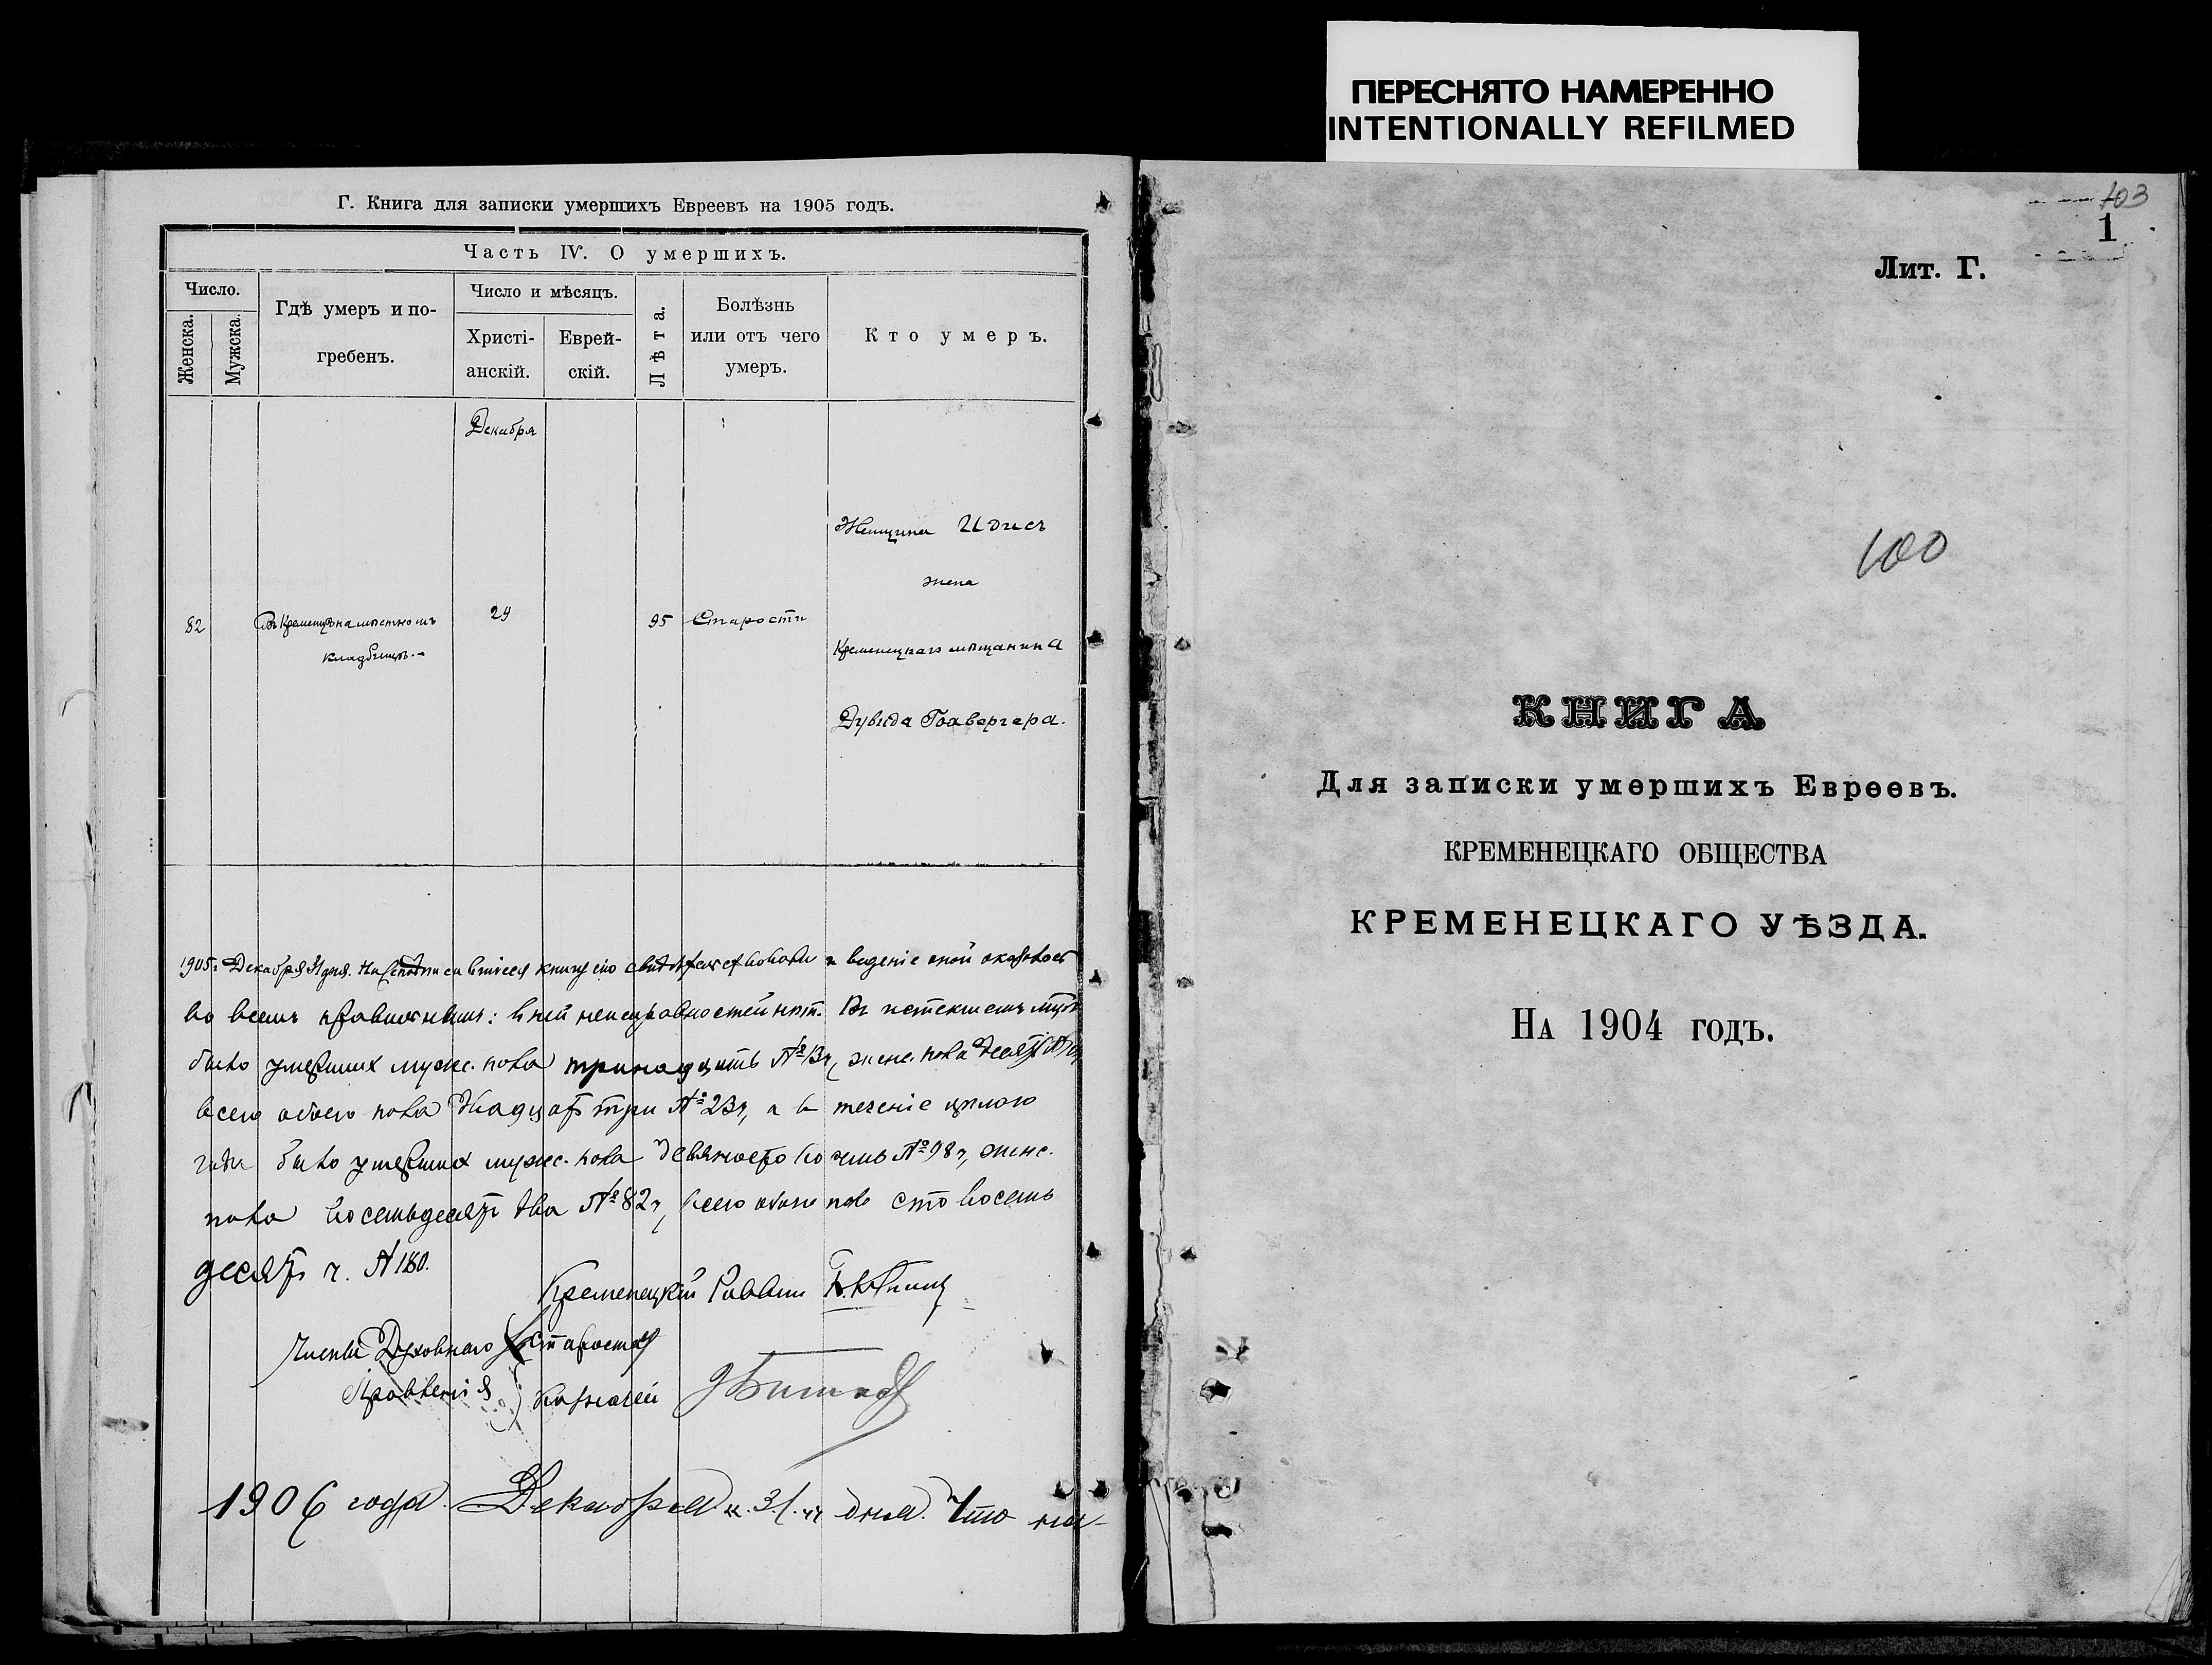 ПЕРЕСНЯТО НАМЕРЕННО
INTENTIONALLY REFILMED
Г. Книга для записки умершихъ Евреевъ на 1905 годъ.
Часть IV. О умершихъ.
Число.
Женска.
Мужска.
Гдѣ умеръ и по-
гребенъ.
Число и мѣсяцъ.
Христі-
анскій.
Еврей-
скій.
Лѣта.
Болѣзнь
или отъ чего
умеръ.
Кто умеръ.
Декабря
82
Въ Кременцѣ на мѣстномъ
кладбищѣ.-
29
95
Старости
Женщина Идись
жена
Кременецкаго мѣщанина
Дувида
1905 г Декабря 31 дня. книгу сію свидѣтельствовали и веденіе оной оказалось
во всемъ правильнымъ: в ней неисправностей нѣтъ. Въ истекшемъ мцѣ
было умерших мужс. пола тринадцать №13 ч, женс. пола десять
всего обоего пола двадцать три №23 ч, а в теченіе цѣлаго
года было умерших мужс. пола девяносто восемь №98 ч, женс.
пола восемьдесятъ два №82 ч, всего обоего пола сто восемь
десятъ ч. №180.
Кременецкій Раввинъ
Члены Духовнаго Староста
Правленія Казначей
1906 года Декабря 31 дня. Что на-
103
1
Лит. Г.
100
КНИГА
Для записки умершихъ Евреевъ.
КРЕМЕНЕЦКАГО ОБЩЕСТВА
КРЕМЕНЕЦКАГО УѢЗДА.
На 1904 годъ.